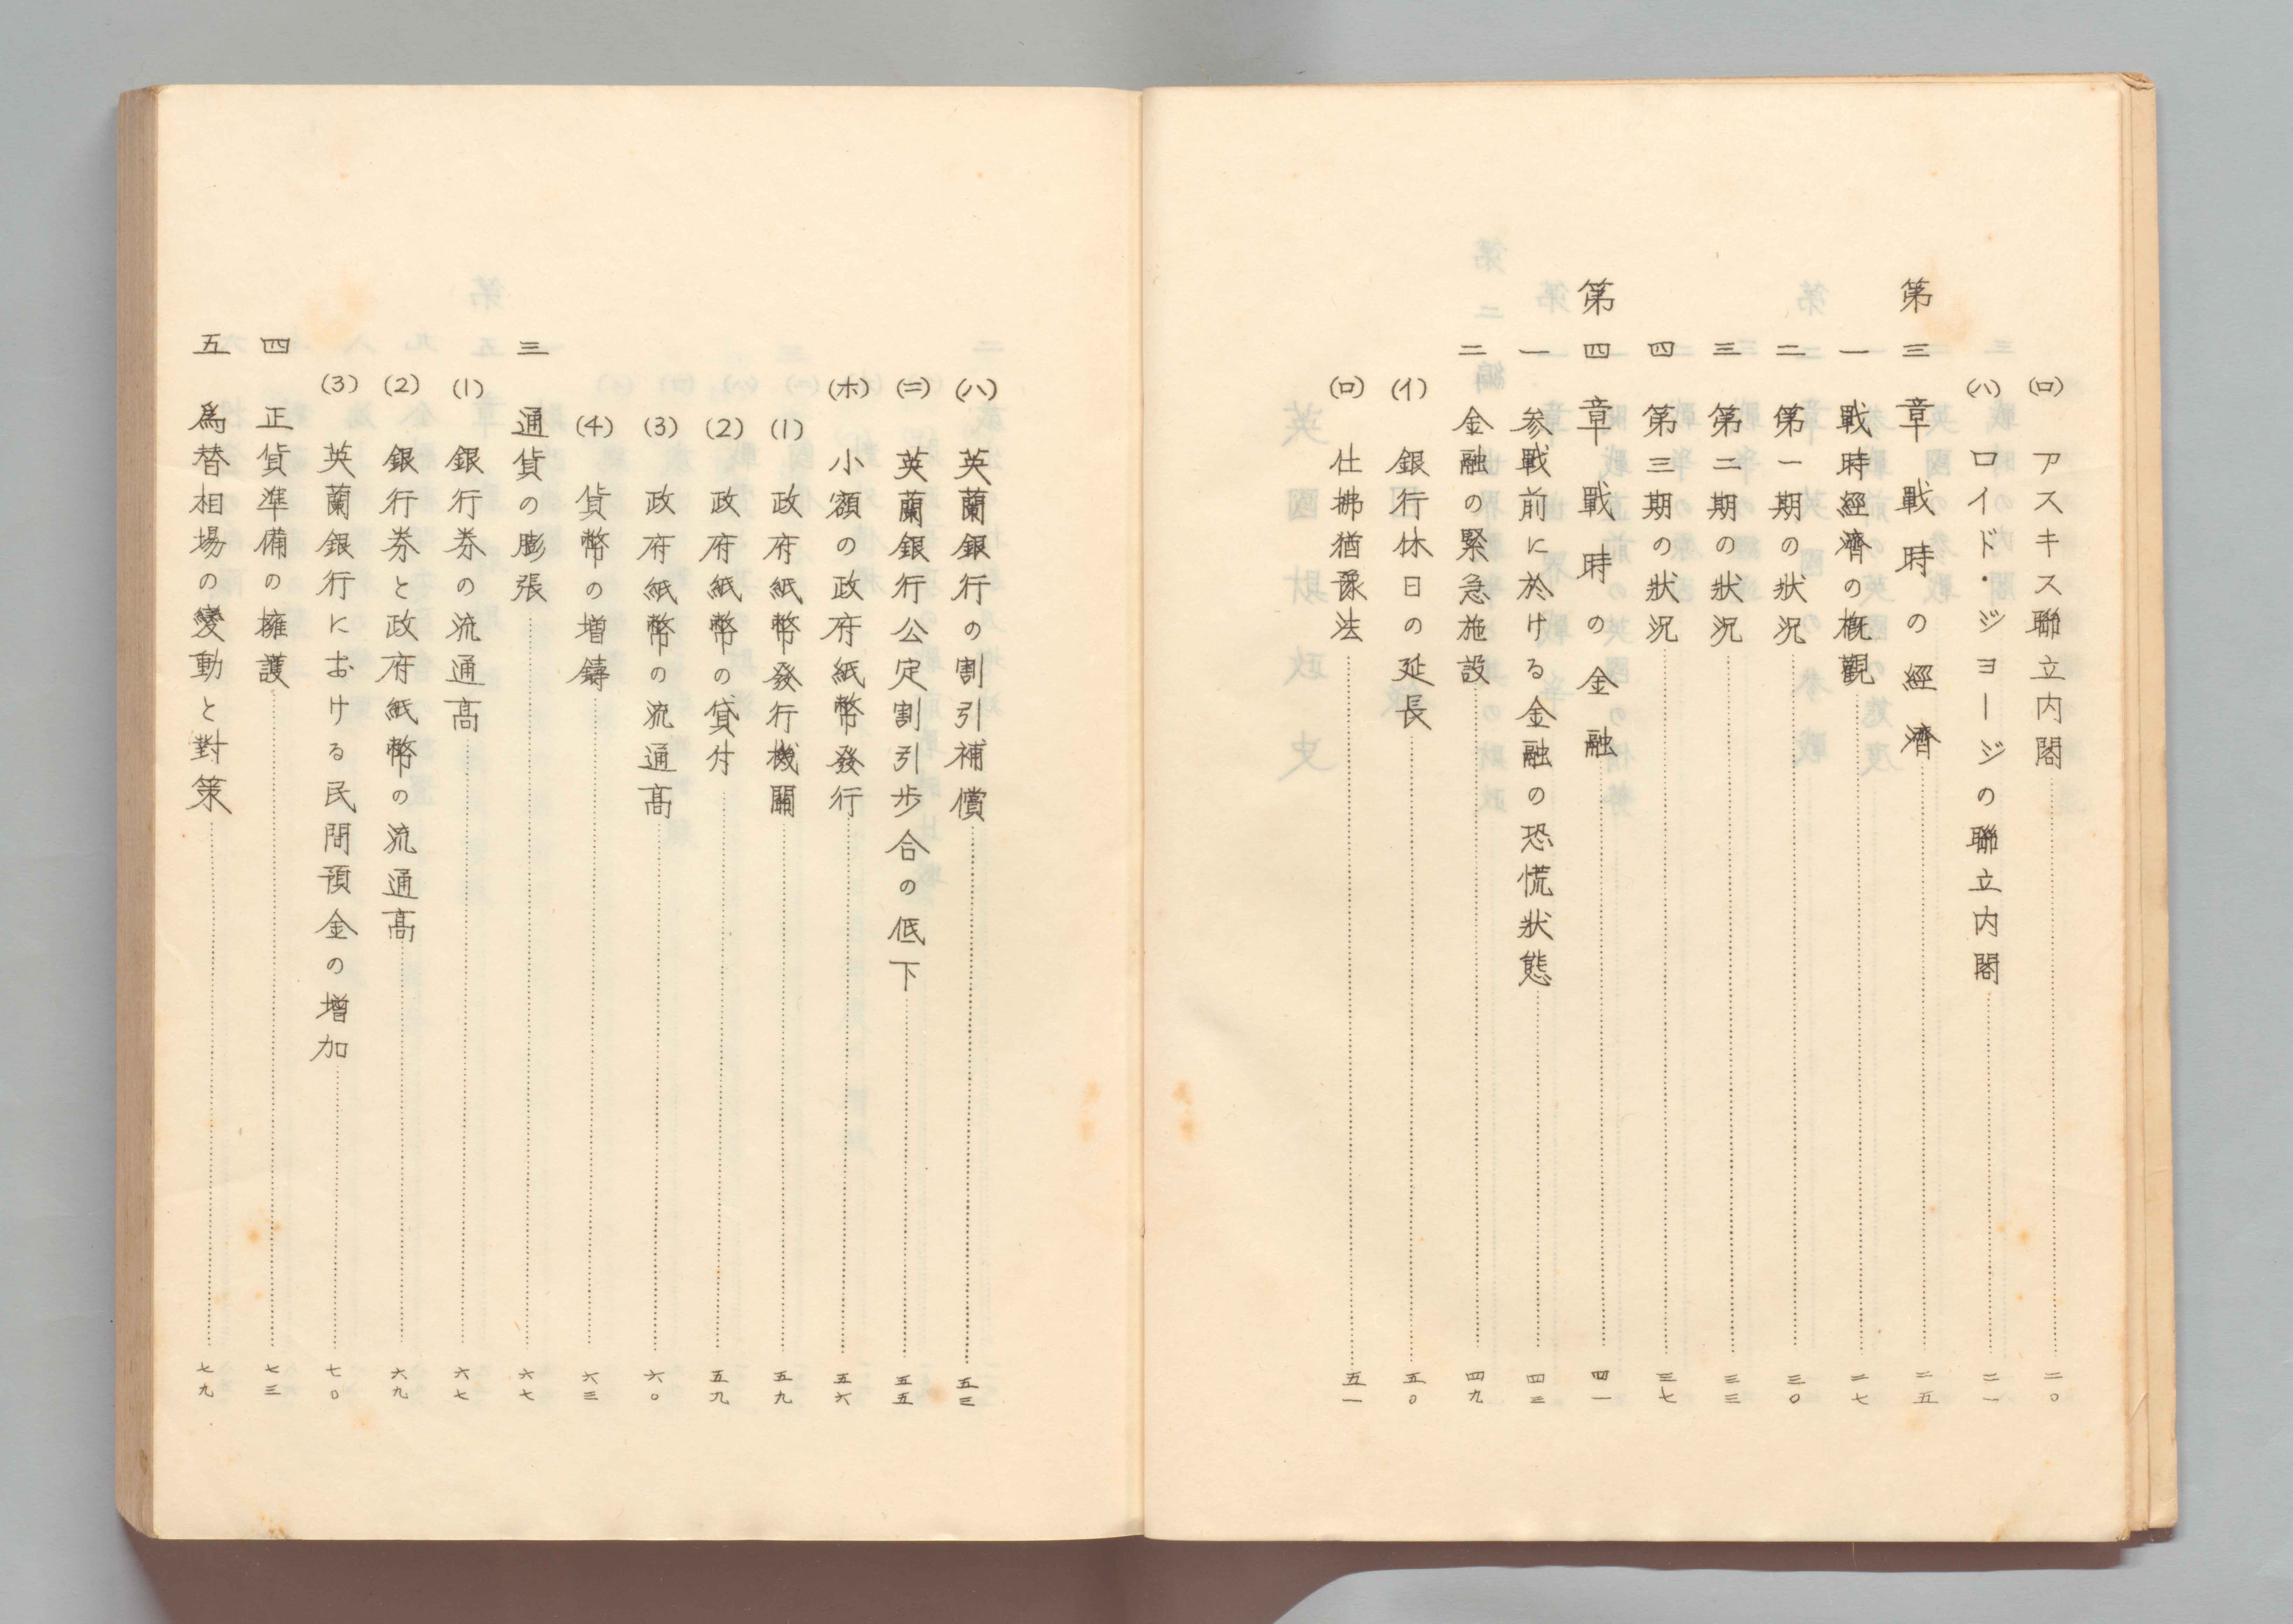 (ロ) アスキス聯立内閣……二〇
(ハ) ロイド・ジヨージの聯立内閣……二一
第三章 戰時の經濟……二五
一 戰時經濟の概觀……二七
二 第一期の狀況……三〇
三 第二期の狀況……三三
四 第三期の狀況……三七
第四章 戰時の金融……四一
一 参戰前に於ける金融の恐慌狀態……四三
二 金融の緊急施設……四九
(イ) 銀行休日の延長……五〇
(ロ) 仕拂猶豫法……五一
(ハ) 英蘭銀行の割引補償……五三
(ニ) 英蘭銀行公定割引歩合の低下……五五
(ホ) 小額の政府紙幣發行……五六
(1) 政府紙幣發行機關……五九
(2) 政府紙幣の貸付……五九
(3) 政府紙幣の流通髙……六〇
(4) 貨幣の増鑄……六三
三 通貨の膨張……六七
(1) 銀行券の流通髙……六七
(2) 銀行券と政府紙幣の流通髙……六九
(3) 英蘭銀行における民間預金の增加……七〇
四 正貨準備の擁護……七三
五 爲替相場の變動と對策……七九